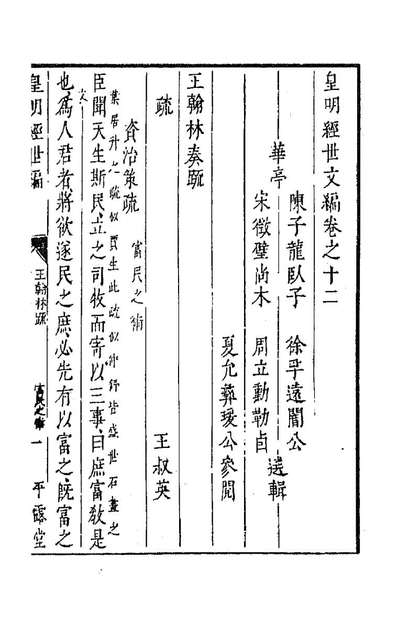 皇明經世文編卷之十二
華亭
陳子龍臥子 徐孚遠闇公
宋徵璧尚木 周立勳勒卣
選輯
夏允彝瑗公參閱
王翰林奏疏
疏 王叔英
資治策疏 富民之術
葉居升之疏似賈生此疏似仲舒皆盛世石畫之
文
臣聞天生斯民立之司牧而寄以三事曰庶富教是
也為人君者將欲遂民之庶必先有以富之旣富之
皇明經世編
王翰林疏
富民之術
一
平露堂